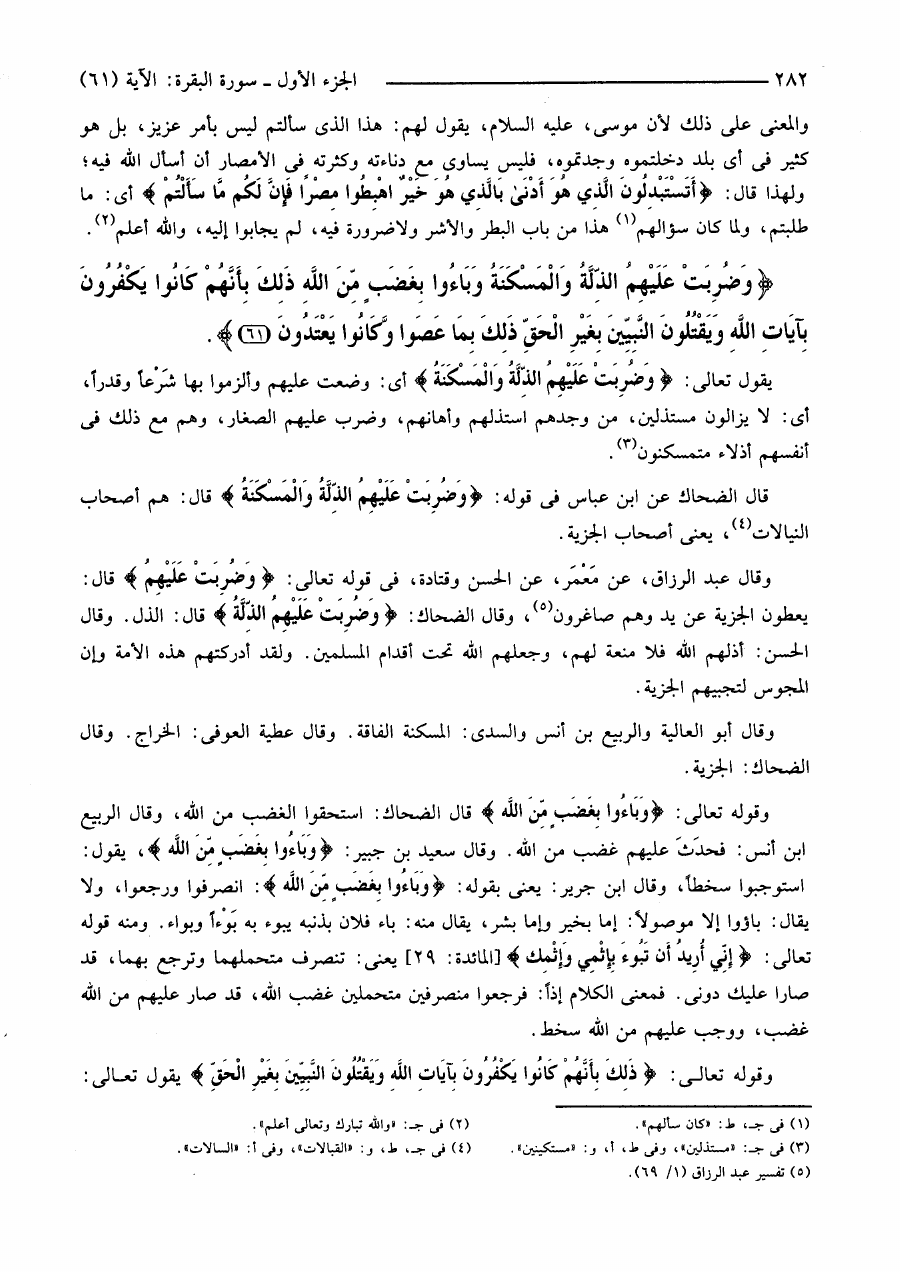 ٢٨٢ ــــــــــــــــ الجزء الأول ـ سورة البقرة: الآية (٦١)
والمعنى على ذلك لأن موسى، عليه السلام، يقول لهم: هذا الذى سألتم ليس بأمر عزيز، بل هو
كثير فى أى بلد دخلتموه وجدتموه، فليس يساوى مع دناءته وكثرته فى الأمصار أن أسأل الله فيه؛
ولهذا قال: ﴿ أَتَسْتَبْدِلُونَ الَّذِي هُوَ أَدْنَىٰ بِالَّذِي هُوَ خَيْرٌ اهْبِطُوا مِصْرًا فَإِنَّ لَكُم مَّا سَأَلْتُمْ ﴾ أى: ما
طلبتم، ولما كان سؤالهم(١) هذا من باب البطر والأشر ولاضرورة فيه، لم يجابوا إليه، والله أعلم(٢).
﴿ وَضُرِبَتْ عَلَيْهِمُ الذِّلَّةُ وَالْمَسْكَنَةُ وَبَاءُوا بِغَضَبٍ مِّنَ اللَّهِ ذَلِكَ بِأَنَّهُمْ كَانُوا يَكْفُرُونَ
بِآيَاتِ اللَّهِ وَيَقْتُلُونَ النَّبِيِّينَ بِغَيْرِ الْحَقِّ ذَلِكَ بِمَا عَصَوا وَّكَانُوا يَعْتَدُونَ (٦١) ﴾.
يقول تعالى: ﴿ وَضُرِبَتْ عَلَيْهِمُ الذِّلَّةُ وَالْمَسْكَنَةُ ﴾ أى: وضعت عليهم وألزموا بها شَرْعاً وقدراً،
أى: لا يزالون مستذلين، من وجدهم استذلهم وأهانهم، وضرب عليهم الصغار، وهم مع ذلك فى
أنفسهم أذلاء متمسكنون(٣).
قال الضحاك عن ابن عباس فى قوله: ﴿ وَضُرِبَتْ عَلَيْهِمُ الذِّلَّةُ وَالْمَسْكَنَةُ ﴾ قال: هم أصحاب
النيالات(٤)، يعنى أصحاب الجزية.
وقال عبد الرزاق، عن مَعْمَر، عن الحسن وقتادة، فى قوله تعالى: ﴿ وَضُرِبَتْ عَلَيْهِمُ ﴾ قال:
يعطون الجزية عن يد وهم صاغرون(٥)، وقال الضحاك: ﴿ وَضُرِبَتْ عَلَيْهِمُ الذِّلَّةُ ﴾ قال: الذل. وقال
الحسن: أذلهم الله فلا منعة لهم، وجعلهم الله تحت أقدام المسلمين. ولقد أدركتهم هذه الأمة وإن
المجوس لتجبيهم الجزية.
وقال أبو العالية والربيع بن أنس والسدى: المسكنة الفاقة. وقال عطية العوفى: الخراج. وقال
الضحاك: الجزية.
وقوله تعالى: ﴿ وَبَاءُوا بِغَضَبٍ مِّنَ اللَّهِ ﴾ قال الضحاك: استحقوا الغضب من الله، وقال الربيع
ابن أنس: فحدَثَ عليهم غضب من الله. وقال سعيد بن جبير: ﴿ وَبَاءُوا بِغَضَبٍ مِّنَ اللَّهِ ﴾، يقول:
استوجبوا سخطاً، وقال ابن جرير: يعنى بقوله: ﴿ وَبَاءُوا بِغَضَبٍ مِّنَ اللَّهِ ﴾: انصرفوا ورجعوا، ولا
يقال: باؤوا إلا موصولاً: إما بخير وإما بشر، يقال منه: باء فلان بذنبه يبوء به بَوْءاً وبواء. ومنه قوله
تعالى: ﴿ إِنِّي أُرِيدُ أَن تَبُوءَ بِإِثْمِي وَإِثْمِكَ ﴾ [المائدة: ٢٩] يعنى: تنصرف متحملهما وترجع بهما، قد
صارا عليك دونى. فمعنى الكلام إذاً: فرجعوا منصرفين متحملين غضب الله، قد صار عليهم من الله
غضب، ووجب عليهم من الله سخط.
وقوله تعالـى: ﴿ ذَلِكَ بِأَنَّهُمْ كَانُوا يَكْفُرُونَ بِآيَاتِ اللَّهِ وَيَقْتُلُونَ النَّبِيِّينَ بِغَيْرِ الْحَقِّ ﴾ يقول تعـالى:
(١) فى جـ، ط: «كان سألهم». (٢) فى جـ: «والله تبارك وتعالى أعلم».
(٣) فى جـ: «مستذلين»، وفى ط، أ، و: «مستكينين». (٤) فى جـ، ط، و: «القبالات»، وفى أ: «السالات».
(٥) تفسير عبد الرزاق (١/ ٦٩).